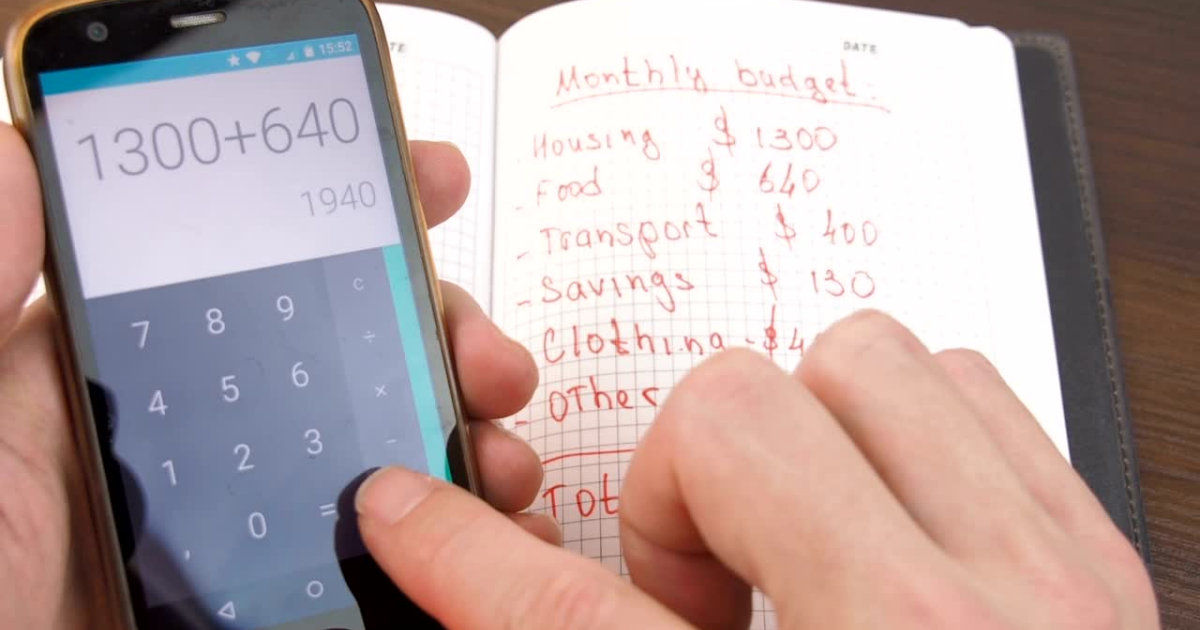 15:52
1300+640
1940
7 8 9 C
÷
4 5 6 ×
1 2 3 -
, 0 =
DATE
Monthly budget:
Housing $ 1300
- Food $ 640
- Transport $ 400
- Savings $ 130
Clothing - $
- Other